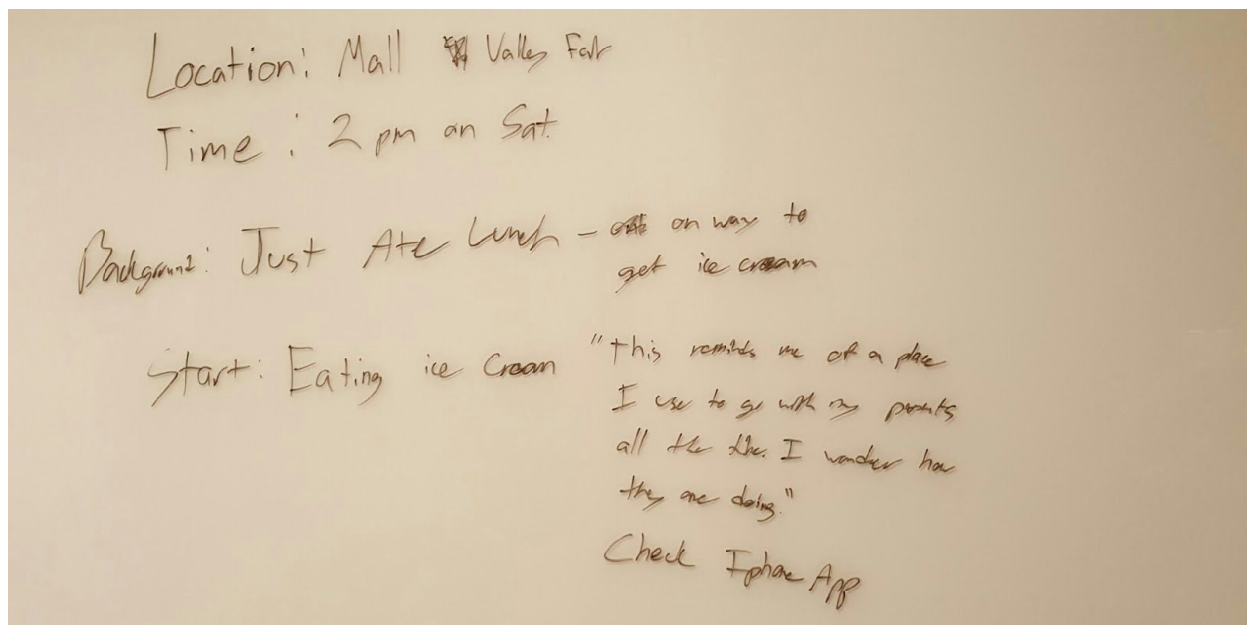 Location: Mall Valley Fair
Time: 2 pm on Sat.
Background: Just Ate Lunch - on way to
get ice cream
Start: Eating ice cream "this reminds me of a place
I use to go with my parents
all the time. I wonder how
they are doing."
Check Iphone App